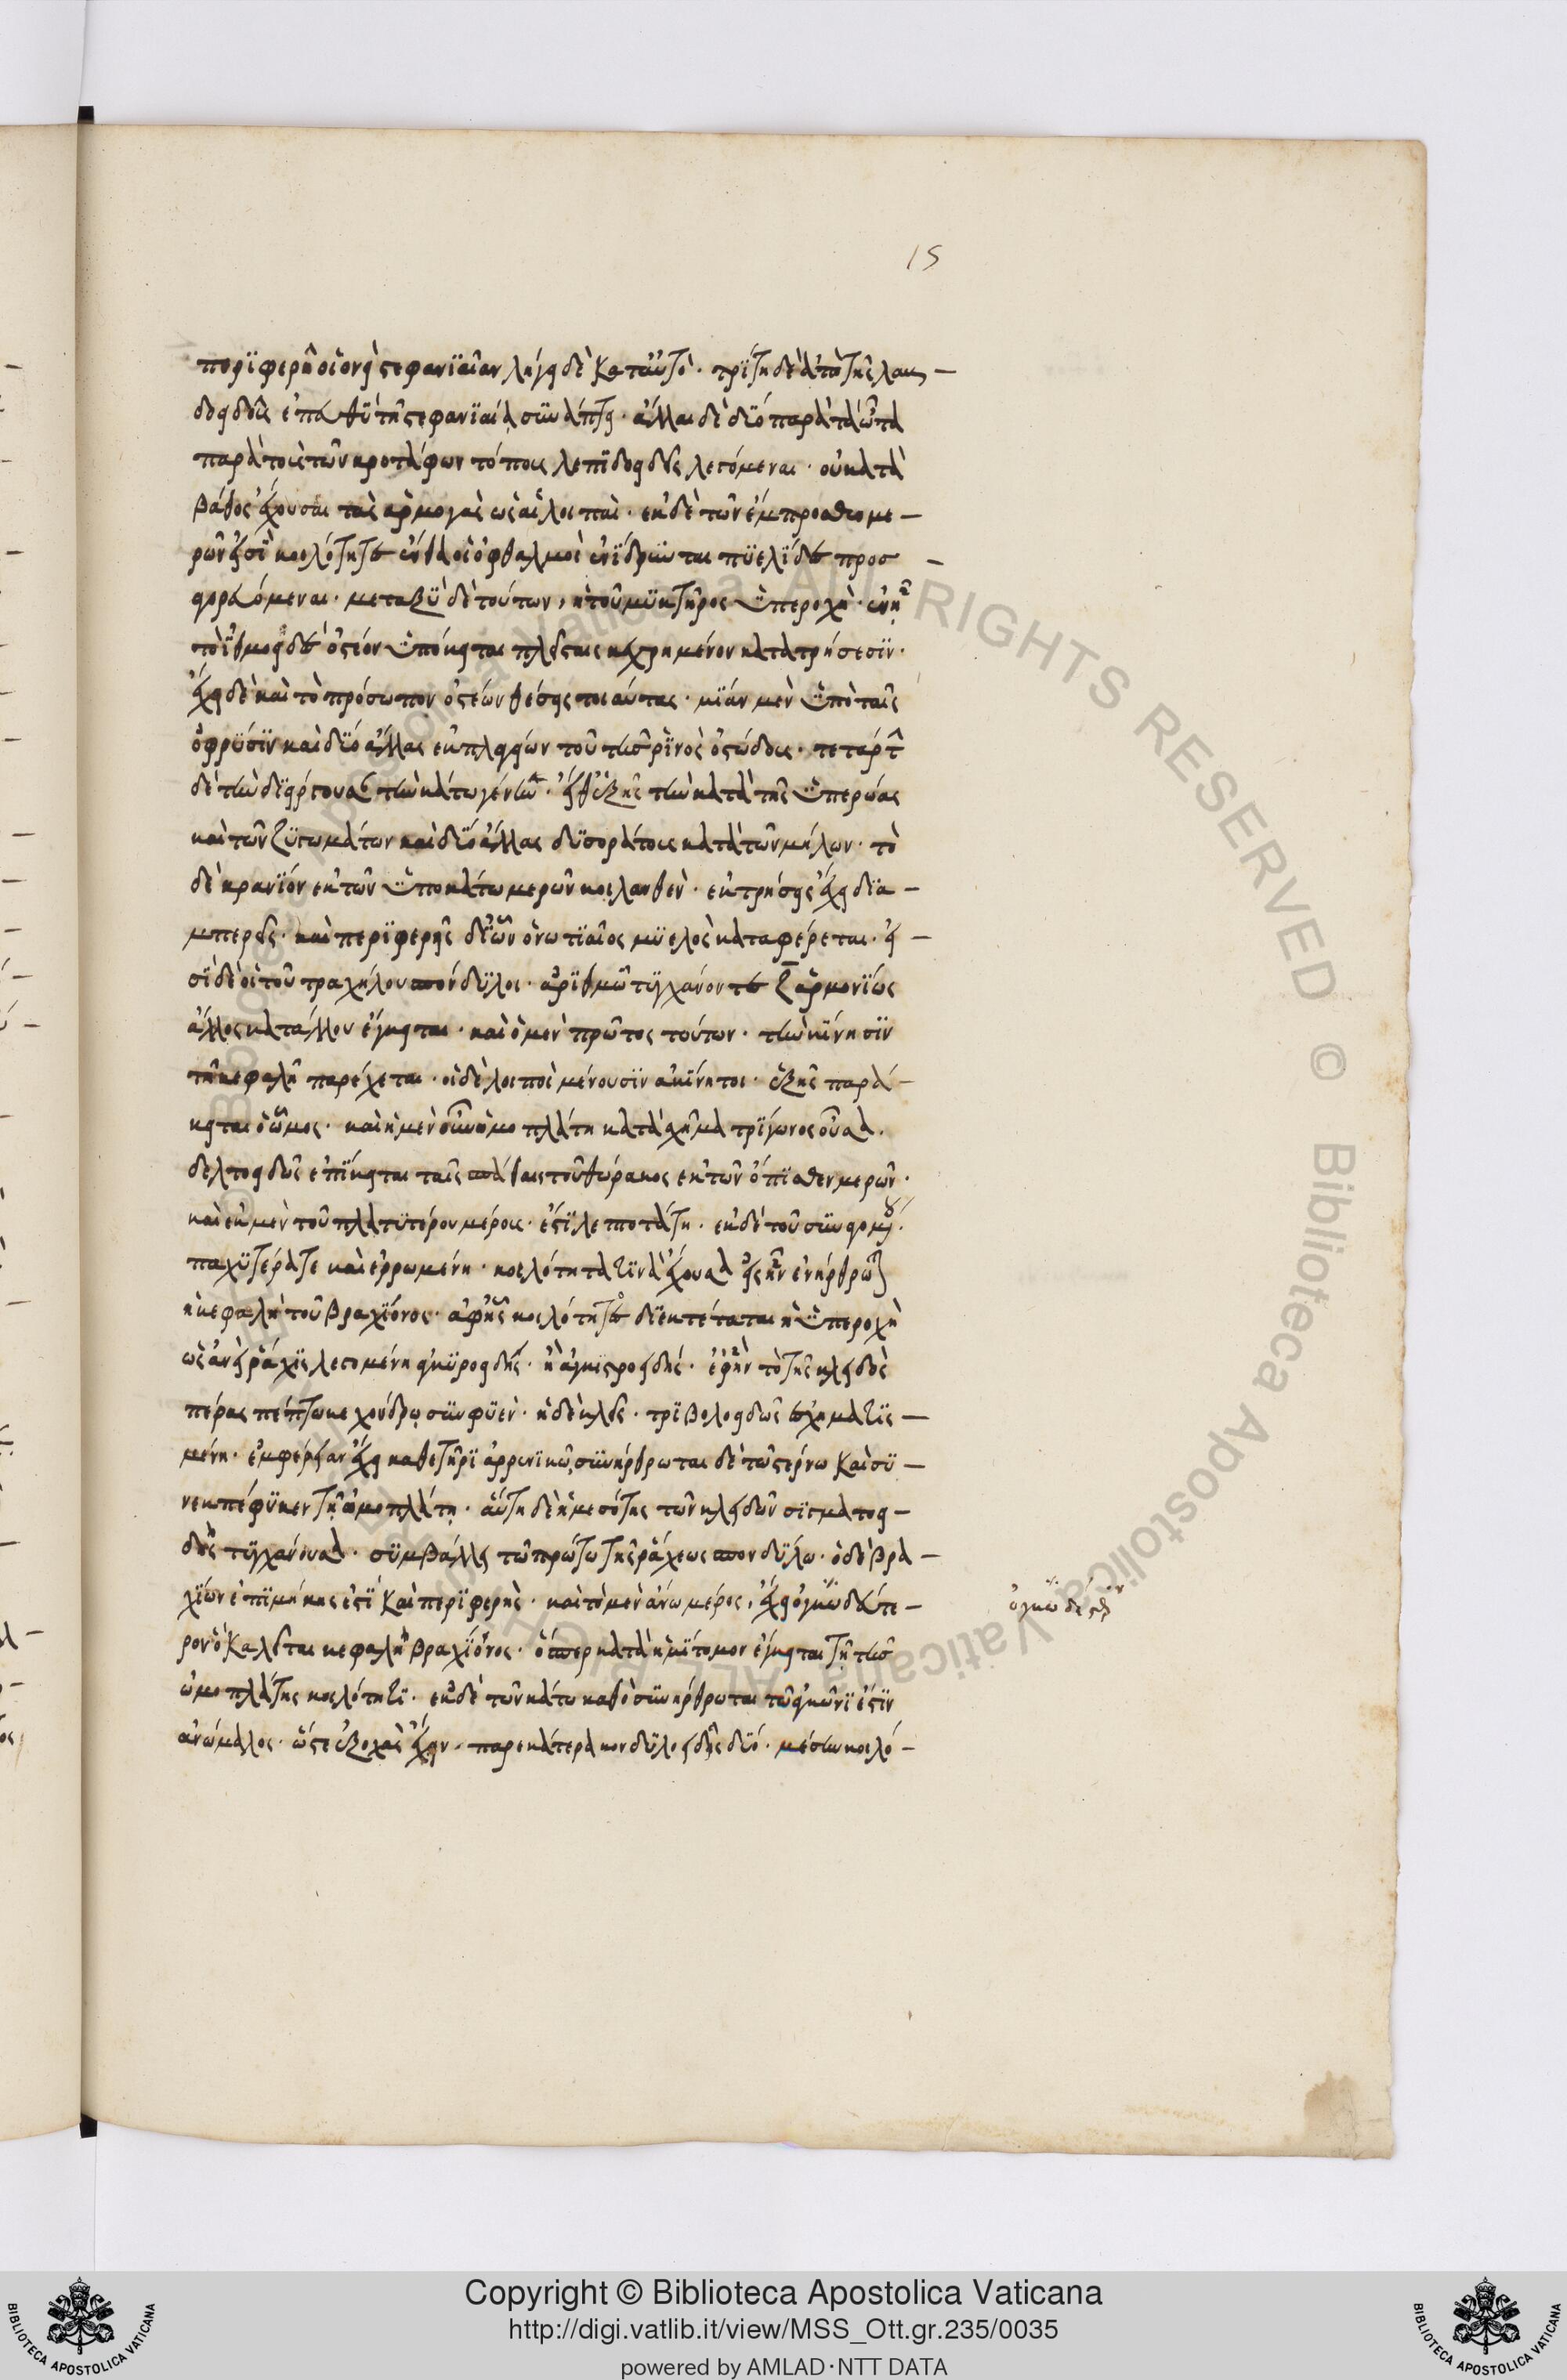 15
περϊφερῆ οἱονεὶ στεφανϊαίαν λήγει δὲ κατ' αὐτό. τρίτη δὲ ἀπὸ τῆς λαμ-
δοειδοῦς ἐπ' εὐθὺ τῆ στεφανϊαία συνάπτει. ἄλλαι δὲ δύο παρὰ τὰ ὦτα
παρὰ τοῖς τῶν κροτάφων τόποις λεπϊδοειδεῖς λεγόμεναι. οὐ κατὰ
βάθος ἔχουσαι τὰς ἁρμογὰς ὡς αἱ λοιπαὶ. ἐκ δὲ τῶν ἔμπροσθεν με-
ρῶν εἰσὶ κοιλότητες ἔνθα οἱ ὀφθαλμοὶ ἐνίδρυνται πϋελίδες προσ-
αγορευόμεναι. μεταξὺ δὲ τούτων, ἡ τοῦ μυκτῆρος ὑπεροχὴ. ἐν ἧ
τὸ ἰθμοειδὲς ὀστέον ὑπόκειται πλείσταις κεχρημένον κατατρήσεσϊν.
ἔχει δὲ καὶ τὸ πρόσωπον ὀστέων θέσεις τοιαύτας. μίαν μὲν ὑπὸ ταῖς
ὀφρύσϊν καὶ δύο ἄλλας ἐκ πλαγίων τοῦ τῆς ῥινὸς ὀστώδους. τετάρτην
δὲ τὴν διείργουσαν τὴν κάτω γένυν. εἶθ' ἑξῆς τὴν κατὰ τῆς ὑπερώας
καὶ τῶν ζυγωμάτων καὶ δύο ἄλλας δυσοράτους κατὰ τῶν μήλων. τὸ
δὲ κρανίον ἐκ τῶν ὑποκάτω μερῶν κοιλανθὲν. ἐκτρήσεις ἔχει δϊα-
μπερεῖς. καὶ περϊφερεῖς δι' ὧν ὁ νωτιαῖος μυελὸς καταφέρεται. εἰ-
σὶ δὲ οἱ τοῦ τραχήλου σπόνδυλοι. ἀριθμῶ τυγχάνοντες ζ ἁρμονίως
ἄλλος κατ' ἄλλου ἔγκειται. καὶ ὁ μὲν πρῶτος τούτων. τὴν κίνησϊν
τῆ κεφαλῆ παρέχεται. οἱ δὲ λοιποὶ μένουσϊν ἀκίνητοι. ἑξῆς παρά-
κειται ὁ ὦμος. καὶ ἡ μὲν οὖν ὠμοπλάτη κατὰ σχῆμα τρίγωνος οὖσα.
δελτοειδῶς ἐπίκειται ταῖς σπάθαις τοῦ θώρακος ἐκ τῶν ὄπισθεν μερῶν.
καὶ ἐκ μὲν τοῦ πλατυτέρου μέρους. ἐστὶ λεπτοτάτη. ἐκ δὲ τοῦ
παχυτέρα τε καὶ ἐρρωμένη. κοιλότητα τινὰ ἔχουσα εἰς ἣν ἐνήρθρωται
ἡ κεφαλὴ τοῦ βραχίονος. ἀφ' ἧς κοιλότητος διεκτέταται ἡ ὑπεροχὴ
ὡσανεὶ ῥάχις λεγομένη ἀγκυροειδὴς. ἢ ἀγκιστροειδής. ἐφ' ἣν τὸ τῆς κλειδὸς
πέρας πέπτωκε χόνδρω συνφυὲν. ἡ δὲ κλεῖς. τριβολοειδῶς ἐσχηματισ-
μένη. ἐμφέρειαν ἔχει καθετῆρι ἀρρενικῶ συνήρθρωται δὲ τῶ στέρνω καὶ συ-
νεκπέφυκεν τῆ ὠμοπλάτη. αὕτη δὲ ἡ μεσότης τῶν κλειδῶν σιγματοει-
δὴς τυγχάνουσα. συμβάλλει τῶ πρώτω τῆς ῥάχεως σπονδύλω. ὁ δὲ βρα-
χίων ἐπιμήκης ἐστὶ καὶ περϊφερὴς. καὶ τὸ μὲν ἄνω μέρος, ἔχει ὀγκωδέστε-
ρον ὃ καλεῖται κεφαλὴ βραχίονος. ὅπερ κατὰ ἡμίτομον ἔγκειται τῆ τῆς
ὠμοπλάτης κοιλότητι. ἐκ δὲ τῶν κάτω καθὸ συνήρθρωται τῶ ἀγκῶνι ἐστὶν
ἀνώμαλος. ὥστε ἐξοχὰς ἔχειν. παρ' ἑκάτερα κονδυλοειδεῖς δύο. μέσην κοιλό-
ὀγκωδέστερον
Copyright © Biblioteca Apostolica Vaticana
http://digi.vatlib.it/view/MSS_Ott.gr.235/0035
powered by AMLAD·NTT DATA